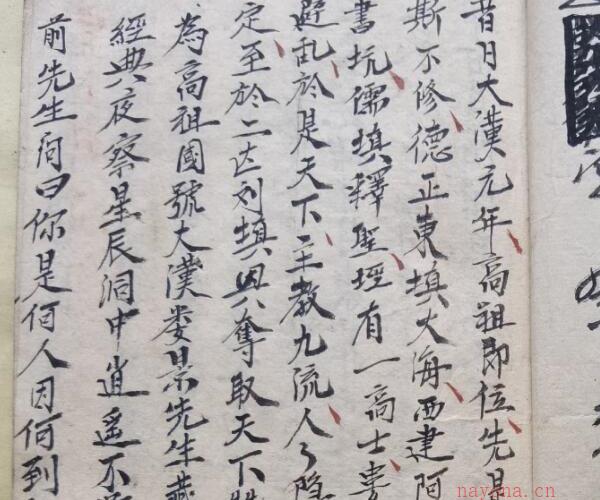 昔日大漢元年高祖即位先是
斯不修德正東填大海西建阿
書坑儒填釋聖經有一高士婁
避乱於是天下三教九流人々隐
定至於二世刘填與奪取天下
為高祖國號大漢娄景先生藏
經典夜察星辰洞中逍遥不
前先生问曰你是何人因何到
nayona.cn